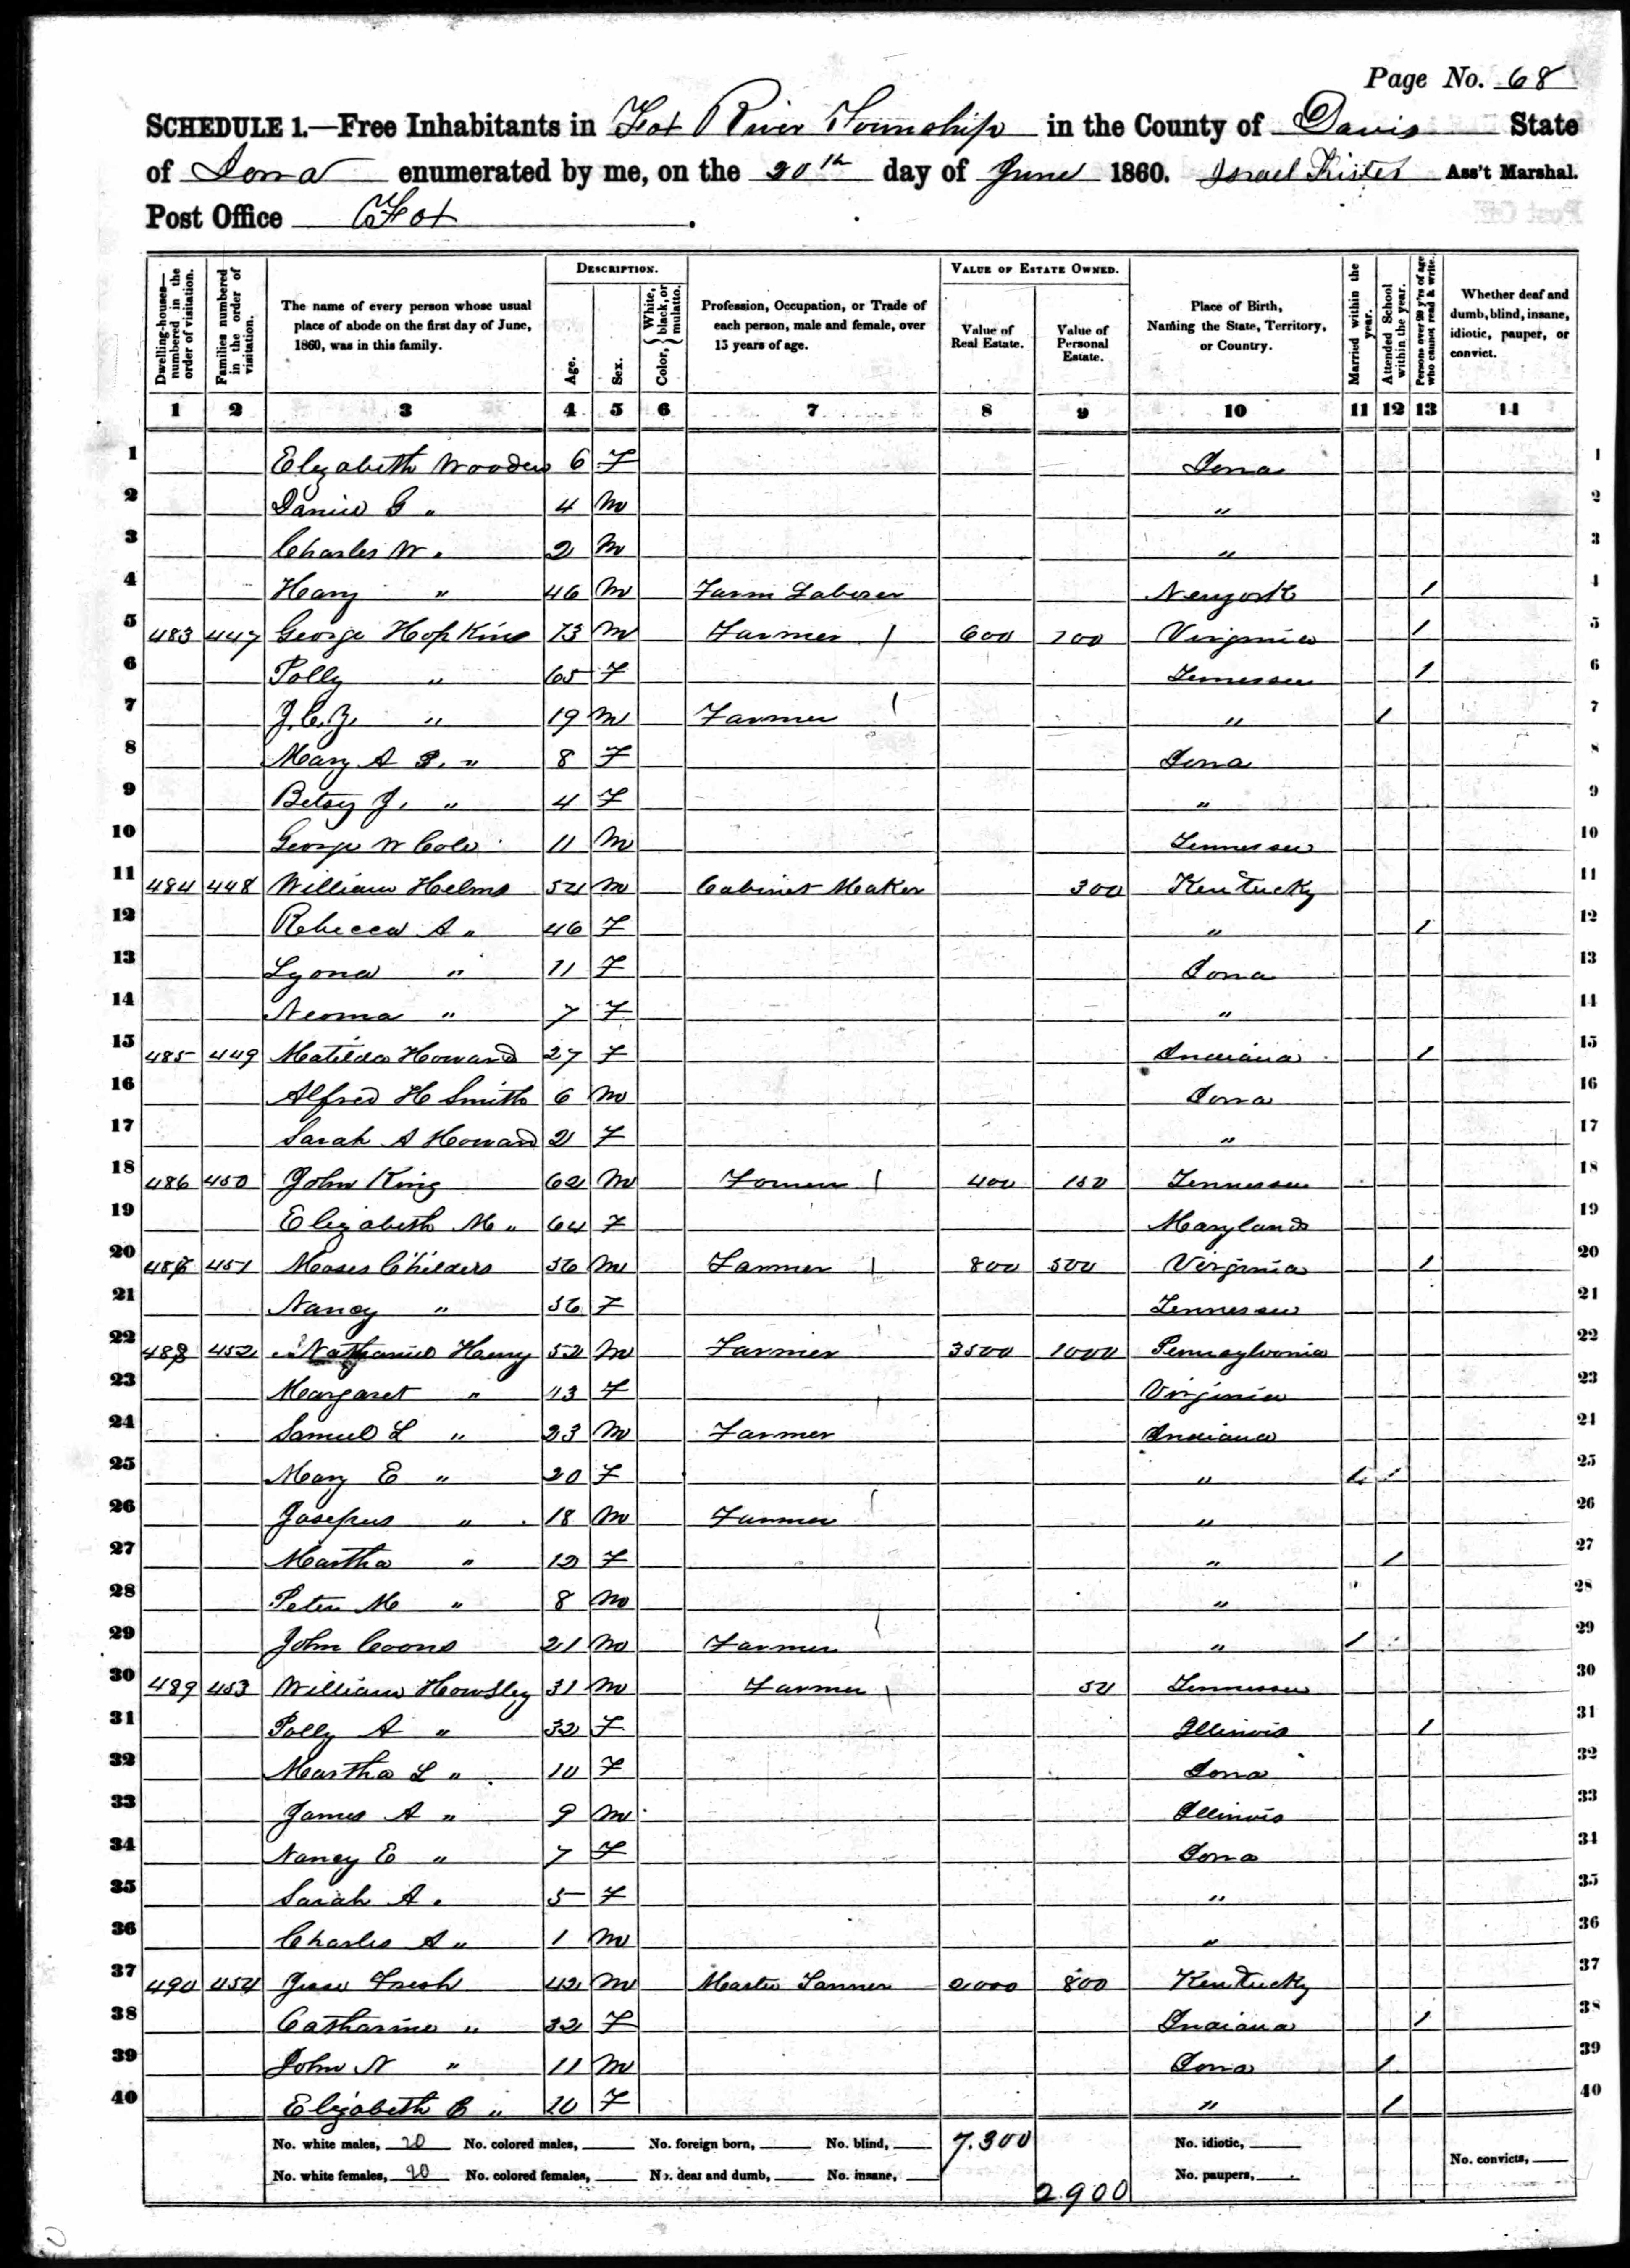 Page No. 68
SCHEDULE 1.—Free Inhabitants in Fox River Township in the County of Davis State
of Iowa enumerated by me, on the 20th day of June 1860. Israel Kister Ass't Marshal.
Post Office Fox.
Dwelling-houses—numbered in the order of visitation.
Families numbered in the order of visitation.
The name of every person whose usual place of abode on the first day of June, 1860, was in this family.
DESCRIPTION.
Age.
Sex.
Color, White, black, or mulatto.
Profession, Occupation, or Trade of each person, male and female, over 15 years of age.
VALUE OF ESTATE OWNED.
Value of Real Estate.
Value of Personal Estate.
Place of Birth, Naming the State, Territory, or Country.
Married within the year.
Attended School within the year.
Persons over 20 y'rs of age who cannot read & write.
Whether deaf and dumb, blind, insane, idiotic, pauper, or convict.
1 2 3 4 5 6 7 8 9 10 11 12 13 14
1 Elizabeth Wooden 6 F Iowa 1
2 Daniel G " 4 M " 2
3 Charles W " 2 M " 3
4 Hary " 46 M Farm Laborer Newyork 1 4
5 483 447 George Hopkins 73 M Farmer 600 200 Virginia 1 5
6 Polly " 65 F Tennessee 1 6
7 J. C. Z. " 19 M Farmer " 1 7
8 Mary A P. " 8 F Iowa 8
9 Betsy J. " 4 F " 9
10 George W Cole 11 M Tennessee 10
11 484 448 William Helms 54 M Cabinet Maker 300 Kentucky 11
12 Rebecca A " 46 F " 1 12
13 Lyona " 11 F Iowa 13
14 Neoma " 7 F " 14
15 485 449 Matilda Howard 27 F Indiana 1 15
16 Alfred H Smith 6 M Iowa 16
17 Sarah A Howard 2 F " 17
18 486 450 John King 62 M Farmer 400 150 Tennessee 18
19 Elizabeth M " 64 F Maryland 19
20 487 451 Moses Childers 56 M Farmer 800 500 Virginia 1 20
21 Nancy " 56 F Tennessee 21
22 488 452 Nathaniel Henry 52 M Farmer 3500 1000 Pennsylvania 22
23 Margaret " 43 F Virginia 23
24 Samuel L " 23 M Farmer Indiana 24
25 Mary E " 20 F " 1 1 25
26 Josephus " 18 M Farmer " 26
27 Martha " 12 F " 1 27
28 Peter M " 8 M " 28
29 John Coons 21 M Farmer " 1 29
30 489 453 William Howsley 31 M Farmer 50 Tennessee 30
31 Polly A " 32 F Illinois 1 31
32 Martha L " 10 F Iowa 32
33 James A " 9 M Illinois 33
34 Nancy E " 7 F Iowa 34
35 Sarah A " 5 F " 35
36 Charles A " 1 M " 36
37 490 454 Jesse 42 M Master Tanner 2000 800 Kentucky 37
38 Catharine " 32 F Indiana 1 38
39 John N " 11 M Iowa 1 39
40 Elizabeth B " 10 F " 1 40
No. white males, 20 No. colored males, No. foreign born, No. blind, 7.300 No. idiotic,
No. white females, 20 No. colored females, No. deaf and dumb, No. insane, 2900 No. paupers, No. convicts,